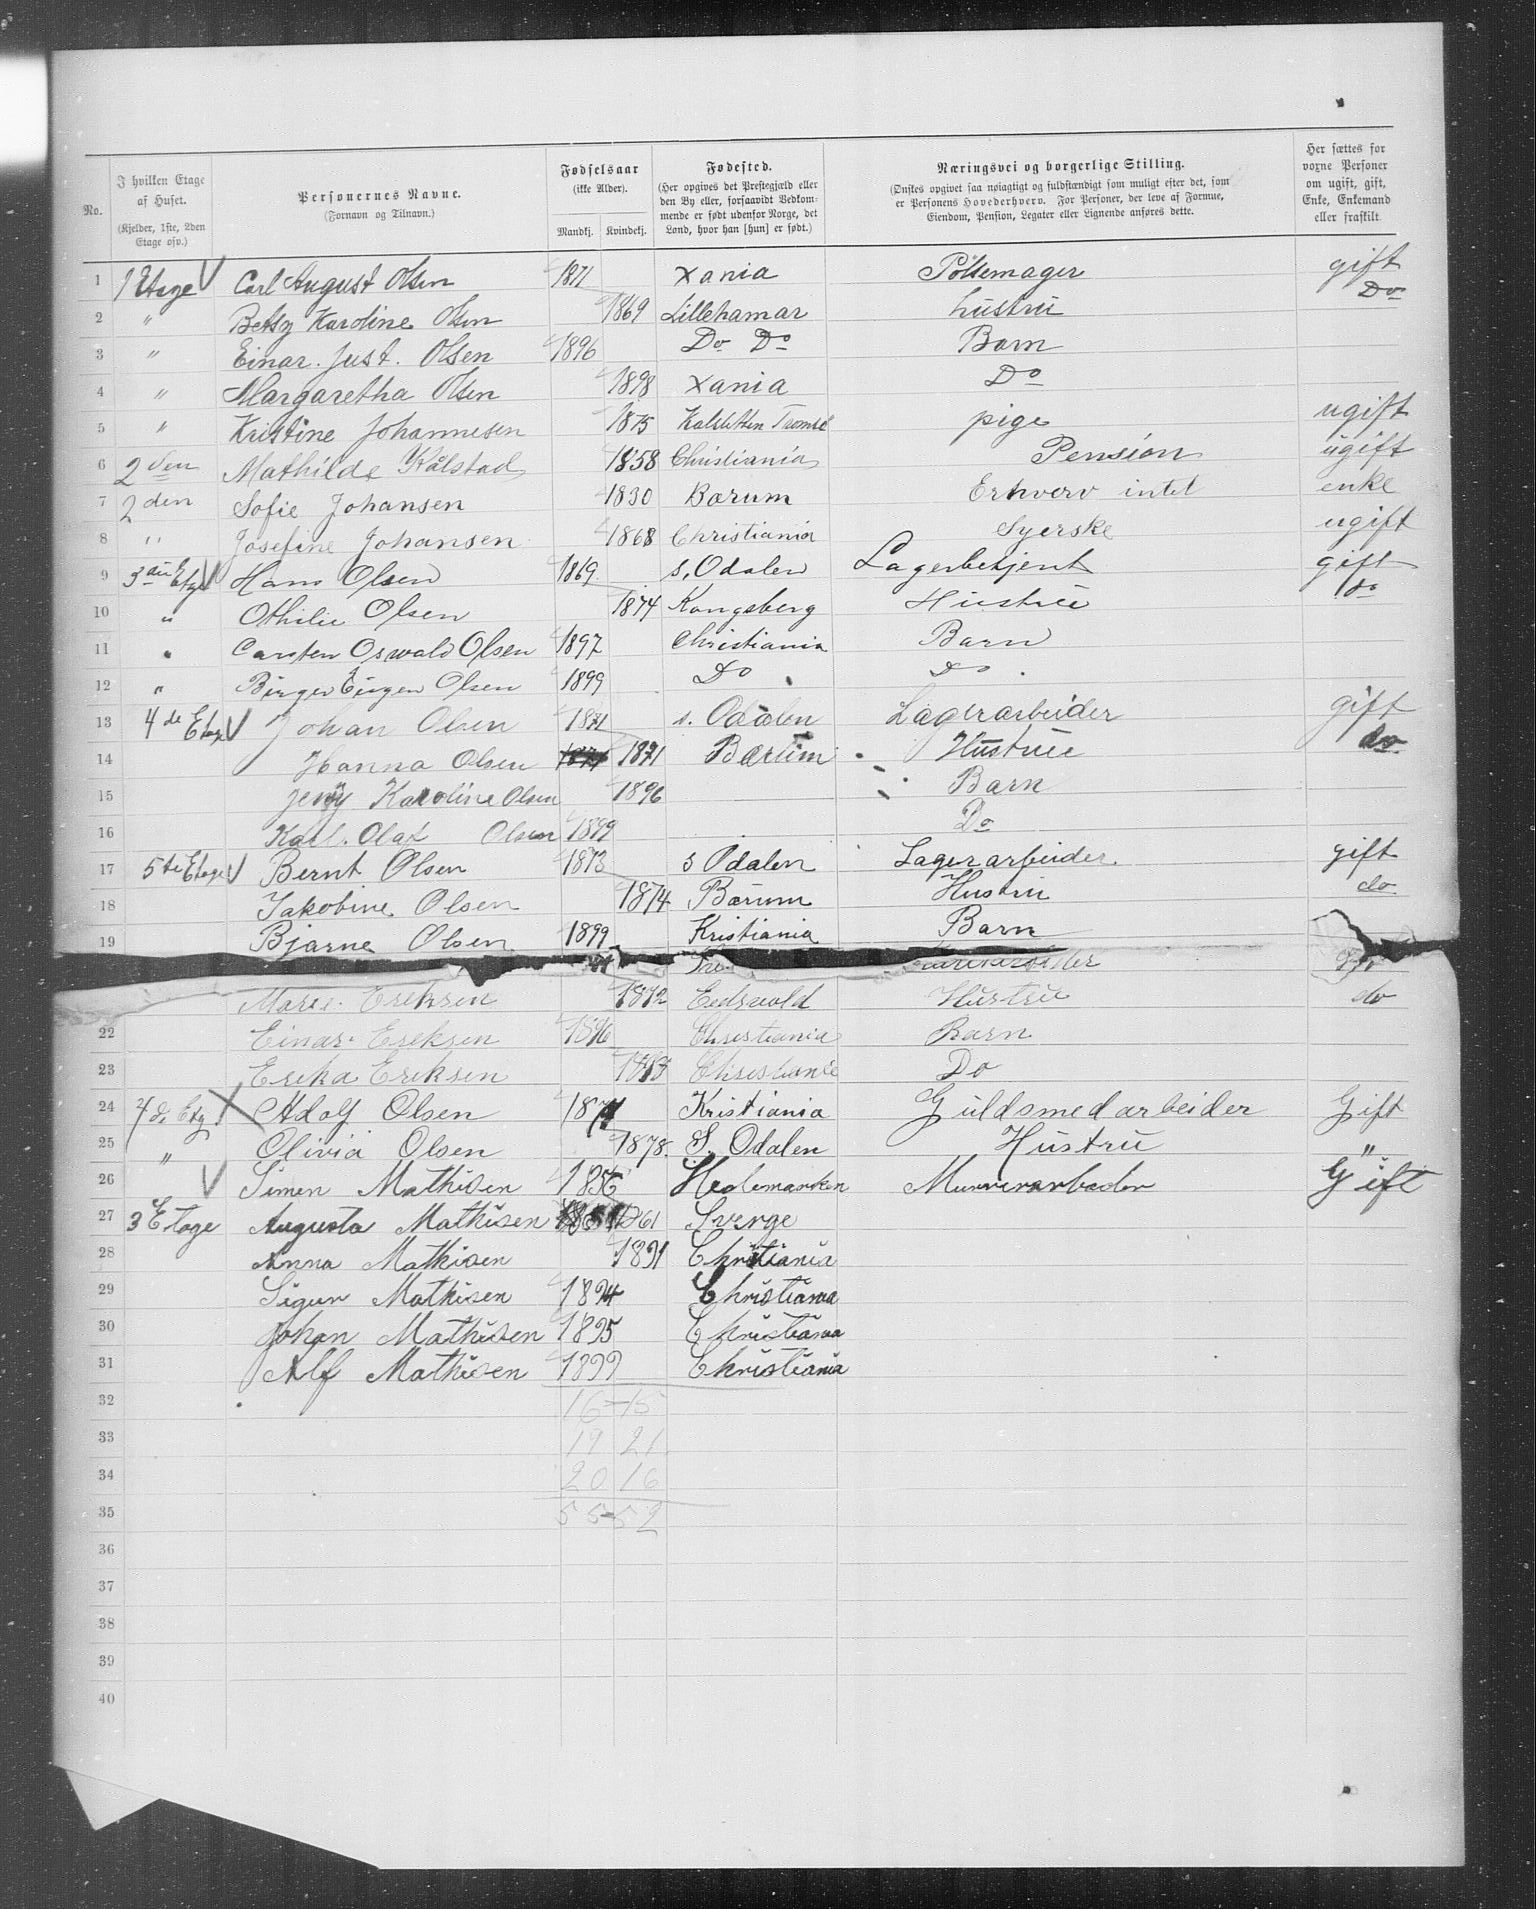 No. | I hvilken Etage af Huset. (Kjelder, 1ste, 2den Etage osv.) | Personernes Navne. (Fornavn og Tilnavn.) | Fødselsaar (ikke Alder). Mandkj. Kvindekj. | Fødested. (Her opgives det Prestegjæld eller den By eller, forsaavidt Vedkommende er født udenfor Norge, det Land, hvor han [hun] er født.) | Næringsvei og borgerlige Stilling. (Ønskes opgivet saa nøiagtigt og fuldstændigt som muligt efter det, som er Personens Hovederhverv. For Personer, der leve af Formue, Eiendom, Pension, Legater eller Lignende anføres dette. | Her sættes for voxne Personer om ugift, gift, Enke, Enkemand eller fraskilt
1 1 Etage V Carl August Olsen 1871 Xania Pølsemager gift
2 " Betsy Karoline Olsen 1869 Lillehamar hustru Do
3 " Einar. Just. Olsen 1896 Do Do Barn
4 " Margaretha Olsen 1898 Xania Do
5 " Kristine Johannesen 1875 Tromsø pige ugift
6 2den Mathilde Kålstad 1858 Christiania Pension ugift
7 2den Sofie Johansen 1830 Barum Erhverv intet enke
8 " Josefine Johansen 1868 Christiania Syerske ugift
9 3die Etg V Hans Olsen 1869 S. Odalen Lagerbetjent gift
10 " Othilie Olsen 1874 Kongsberg Hustrue do
11 " Carsten Oswald Olsen 1897 Christiania Barn
12 " Birger Eugen Olsen 1899 Do Do
13 4de Etag V Johan Olsen 1871 s. Odalen Lagerarbeider gift
14 Hanna Olsen 1871 Bærum Hustrue do
15 Jenny Karoline Olsen 1896 Barn
16 Karl. Olaf Olsen 1899 Do
17 5te Etage V Bernt Olsen 1873 s Odalen Lagerarbeider gift
18 Jakobine Olsen 1874 Bærum Hustru do
19 Bjarne Olsen 1899 Kristiania Barn
Marie Eriksen 1872 Eidsvold Hustru do
22 Einar Eriksen 1896 Christiania Barn
23 Erika Eriksen Christiania Do
24 4de Etg X Adolf Olsen 1871 Kristiania Guldsmedarbeider Gift
25 " Olivia Olsen 1878. S. Odalen Hustru "
26 V Simen Mathisen 1856 Hedemarken Murerarbeder Gift
27 3 Etage Augusta Mathisen 1861 Sverge
28 Anna Mathisen 1891 Christiania
29 Sigur Mathisen 1894 Christiania
30 Johan Mathisen 1895 Christiania
31 Alf Mathisen 1899 Christiania
32 16-15
33 19 21
34 20 16
35 55-52
36
37
38
39
40